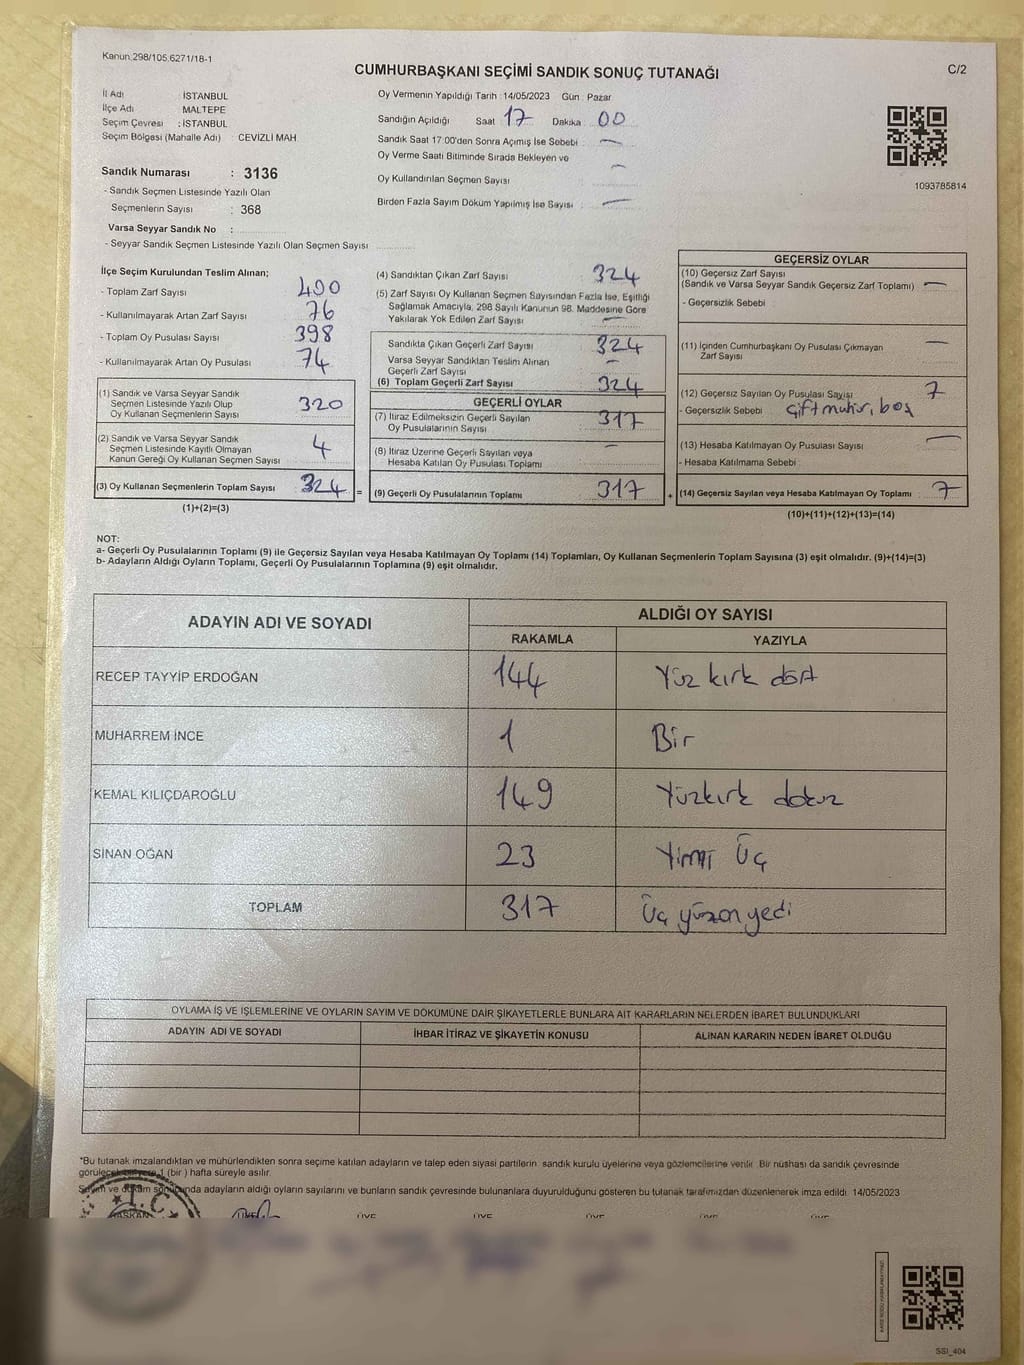 Kanun.298/105.6271/18-1
CUMHURBAŞKANI SEÇİMİ SANDIK SONUÇ TUTANAĞI
C/2
İl Adı İSTANBUL
İlçe Adı MALTEPE
Seçim Çevresi : İSTANBUL
Seçim Bölgesi (Mahalle Adı) CEVİZLİ MAH.
Sandık Numarası : 3136
- Sandık Seçmen Listesinde Yazılı Olan
Seçmenlerin Sayısı : 368
Varsa Seyyar Sandık No :
- Seyyar Sandık Seçmen Listesinde Yazılı Olan Seçmen Sayısı
Oy Vermenin Yapıldığı Tarih : 14/05/2023 Gün : Pazar
Sandığın Açıldığı Saat 17 Dakika 00
Sandık Saat 17:00'den Sonra Açımış İse Sebebi : —
Oy Verme Saati Bitiminde Sırada Bekleyen ve
Oy Kullandırılan Seçmen Sayısı : —
Birden Fazla Sayım Döküm Yapılmış İse Sayısı : —
1093785814
İlçe Seçim Kurulundan Teslim Alınan;
- Toplam Zarf Sayısı 400
- Kullanılmayarak Artan Zarf Sayısı 76
- Toplam Oy Pusulası Sayısı 398
- Kullanılmayarak Artan Oy Pusulası 74
(1) Sandık ve Varsa Seyyar Sandık
Seçmen Listesinde Yazılı Olup
Oy Kullanan Seçmenlerin Sayısı 320
(2) Sandık ve Varsa Seyyar Sandık
Seçmen Listesinde Kayıtlı Olmayan
Kanun Gereği Oy Kullanan Seçmen Sayısı 4
(3) Oy Kullanan Seçmenlerin Toplam Sayısı 324 =
(1)+(2)=(3)
(4) Sandıktan Çıkan Zarf Sayısı 324
(5) Zarf Sayısı Oy Kullanan Seçmen Sayısından Fazla İse, Eşitliği
Sağlamak Amacıyla, 298 Sayılı Kanunun 98. Maddesine Göre
Yakılarak Yok Edilen Zarf Sayısı : —
Sandıkta Çıkan Geçerli Zarf Sayısı 324
Varsa Seyyar Sandıktan Teslim Alınan
Geçerli Zarf Sayısı —
(6) Toplam Geçerli Zarf Sayısı 324
GEÇERLİ OYLAR
(7) İtiraz Edilmeksizin Geçerli Sayılan
Oy Pusulalarının Sayısı 317
(8) İtiraz Üzerine Geçerli Sayılan veya
Hesaba Katılan Oy Pusulası Toplamı —
(9) Geçerli Oy Pusulalarının Toplamı 317 +
GEÇERSİZ OYLAR
(10) Geçersiz Zarf Sayısı
(Sandık ve Varsa Seyyar Sandık Geçersiz Zarf Toplamı) : —
- Geçersizlik Sebebi
(11) İçinden Cumhurbaşkanı Oy Pusulası Çıkmayan
Zarf Sayısı : —
(12) Geçersiz Sayılan Oy Pusulası Sayısı : 7
- Geçersizlik Sebebi çift mühür, boş
(13) Hesaba Katılmayan Oy Pusulası Sayısı : —
- Hesaba Katılmama Sebebi
(14) Geçersiz Sayılan veya Hesaba Katılmayan Oy Toplamı : 7
(10)+(11)+(12)+(13)=(14)
NOT:
a- Geçerli Oy Pusulalarının Toplamı (9) ile Geçersiz Sayılan veya Hesaba Katılmayan Oy Toplamı (14) Toplamları, Oy Kullanan Seçmenlerin Toplam Sayısına (3) eşit olmalıdır. (9)+(14)=(3)
b- Adayların Aldığı Oyların Toplamı, Geçerli Oy Pusulalarının Toplamına (9) eşit olmalıdır.
ADAYIN ADI VE SOYADI ALDIĞI OY SAYISI
RAKAMLA YAZIYLA
RECEP TAYYİP ERDOĞAN 144 Yüz kırk dört
MUHARREM İNCE 1 Bir
KEMAL KILIÇDAROĞLU 149 Yüzkırk dokuz
SİNAN OĞAN 23 Yirmi Üç
TOPLAM 317 Üç yüzon yedi
OYLAMA İŞ VE İŞLEMLERİNE VE OYLARIN SAYIM VE DÖKÜMÜNE DAİR ŞİKAYETLERLE BUNLARA AİT KARARLARIN NELERDEN İBARET BULUNDUKLARI
ADAYIN ADI VE SOYADI İHBAR İTİRAZ VE ŞİKAYETİN KONUSU ALINAN KARARIN NEDEN İBARET OLDUĞU
*Bu tutanak imzalandıktan ve mühürlendikten sonra seçime katılan adayların ve talep eden siyasi partilerin sandık kurulu üyelerine veya gözlemcilerine verilir. Bir nüshası da sandık çevresinde
görülecek bir yere 1 (bir) hafta süreyle asılır.
Sayım ve döküm sonucunda adayların aldığı oyların sayılarını ve bunların sandık çevresinde bulunanlara duyurulduğunu gösteren bu tutanak tarafımızdan düzenlenerek imza edildi. 14/05/2023
T.C.
BAŞKAN ÜYE ÜYE ÜYE ÜYE ÜYE ÜYE
SSI_404